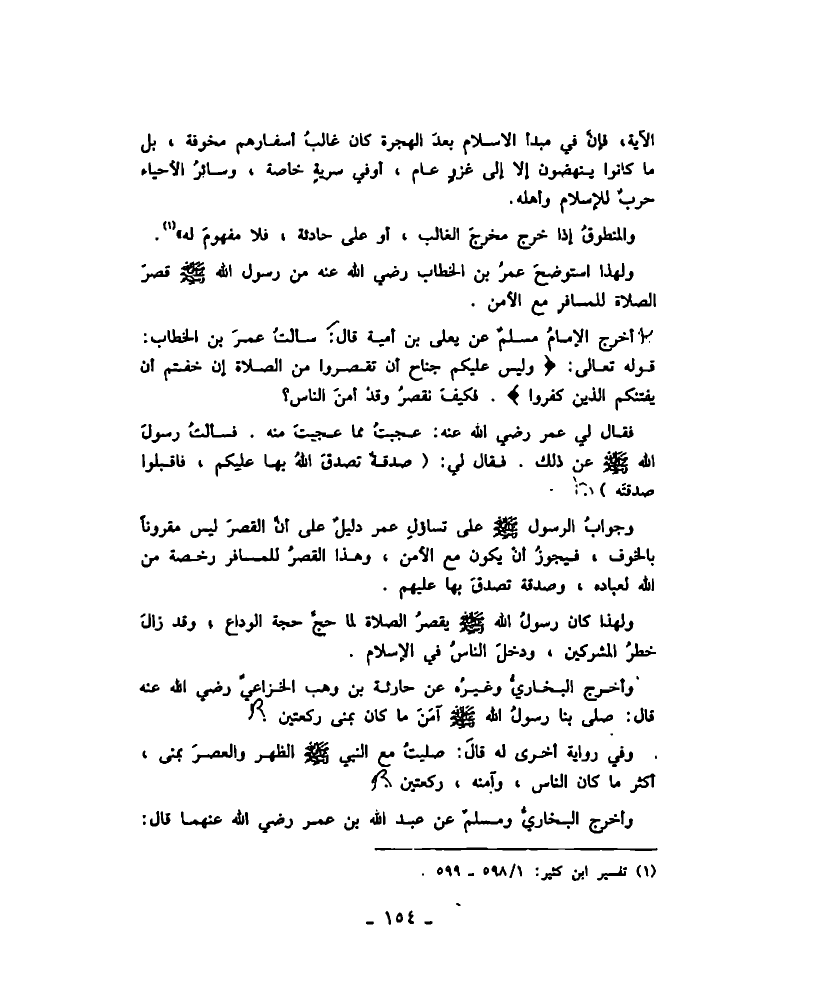 الآية، فإنَّ في مبدأ الاسلام بعدَ الهجرة كان غالبُ أسفارهم مخوفة ، بل
ما كانوا ينهضون إلا إلى غزوٍ عام ، أوفي سريةٍ خاصة ، وسائرُ الأحياء
حربٌ للإسلام وأهله.
والمنطوقُ إذا خرج مخرجَ الغالب ، أو على حادثة ، فلا مفهومَ له»(١).
ولهذا استوضحَ عمرُ بن الخطاب رضي الله عنه من رسول الله ﷺ قصرَ
الصلاة للمسافر مع الأمن .
أخرج الإمامُ مسلمٌ عن يعلى بن أمية قال: سألتُ عمرَ بن الخطاب:
قوله تعالى: ﴿ وليس عليكم جناح أن تقصروا من الصلاة إن خفتم أن
يفتنكم الذين كفروا ﴾ . فكيفَ نقصرُ وقدْ أمنَ الناس؟
فقال لي عمر رضي الله عنه: عجبتُ مما عجبتَ منه . فسألتُ رسولَ
الله ﷺ عن ذلك . فقال لي: ( صدقةٌ تصدقَ اللهُ بها عليكم ، فاقبلوا
صدقتَه )
وجوابُ الرسول ﷺ على تساؤلِ عمر دليلٌ على أنَّ القصرَ ليس مقروناً
بالخوف ، فيجوزُ أنْ يكون مع الأمن ، وهذا القصرُ للمسافر رخصة من
الله لعباده ، وصدقة تصدقَ بها عليهم .
ولهذا كان رسولُ الله ﷺ يقصرُ الصلاة لما حجَّ حجة الوداع ؛ وقد زالَ
خطرُ المشركين ، ودخلَ الناسُ في الإسلام .
وأخرج البخاريُّ وغيرُه عن حارثة بن وهب الخزاعيِّ رضي الله عنه
قال: صلى بنا رسولُ الله ﷺ آمَنَ ما كان بمنى ركعتين
وفي رواية أخرى له قالَ: صليتُ مع النبي ﷺ الظهر والعصرَ بمنى ،
أكثر ما كان الناس ، وآمنه ، ركعتين
وأخرج البخاريُّ ومسلمٌ عن عبد الله بن عمر رضي الله عنهما قال:
(١) تفسير ابن كثير: ٥٩٨/١ ـ ٥٩٩ .
ـ ١٥٤ ـ